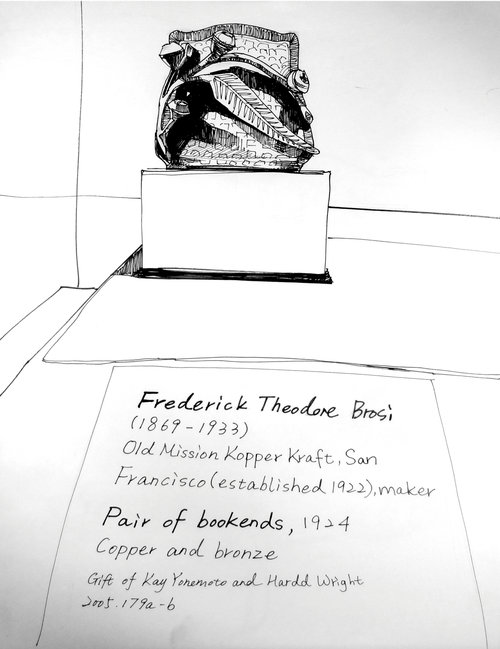 Frederick Theodore Brosi
(1869-1933)
Old Mission Kopper Kraft, San
Francisco (established 1922), maker
Pair of bookends, 1924
Copper and bronze
Gift of Kay Yonemoto and Hardd Wright
2005.179a-b